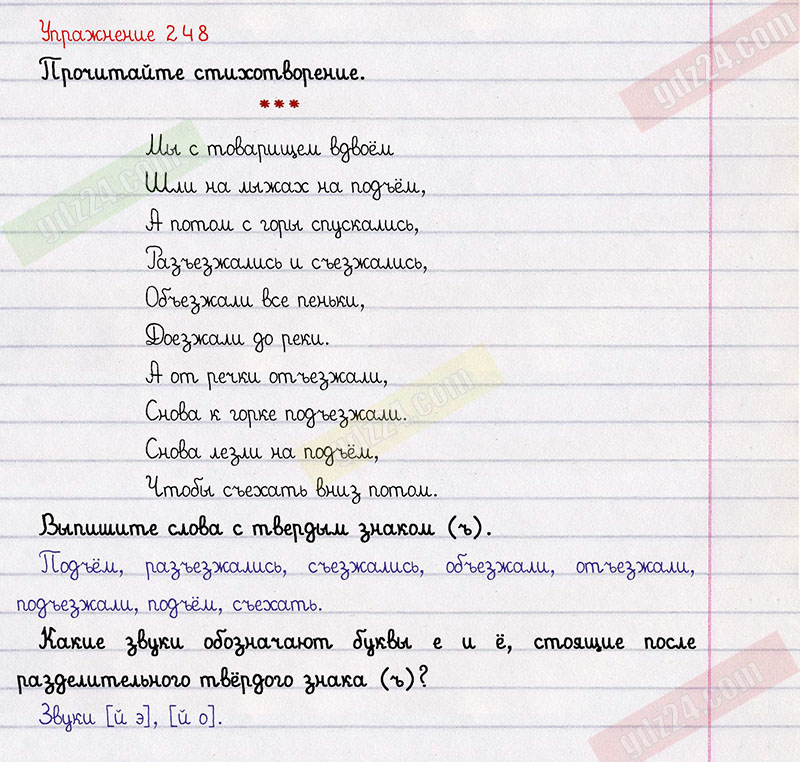 Упражнение 248
Прочитайте стихотворение.
***
Мы с товарищем вдвоём
Шли на лыжах на подъём,
А потом с горы спускались,
Разъезжались и съезжались,
Объезжали все пеньки,
Доезжали до реки.
А от речки отъезжали,
Снова к горке подъезжали.
Снова лезли на подъём,
Чтобы съехать вниз потом.
Выпишите слова с твердым знаком (ъ).
Подъём, разъезжались, съезжались, объезжали, отъезжали,
подъезжали, подъём, съехать.
Какие звуки обозначают буквы е и ё, стоящие после
разделительного твёрдого знака (ъ)?
Звуки [й э], [й о].
gdz24.com
gdz24.com
gdz24.com
gdz24.com